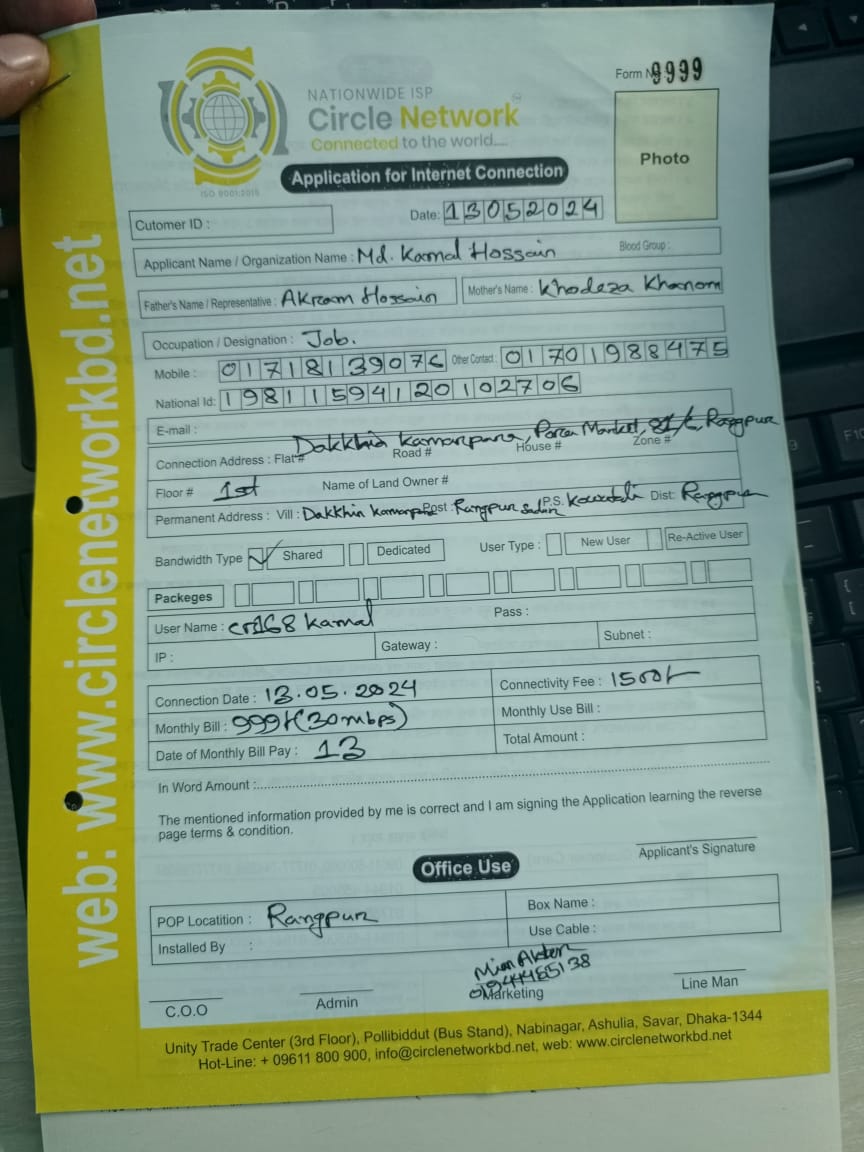 NATIONWIDE ISP
Circle Network
Connected to the world....
ISO 9001:2015
Form No 9999
Photo
Application for Internet Connection
Cutomer ID :
Date: 13052024
Applicant Name / Organization Name : Md. Kamal Hossain Blood Group :
Father's Name / Representative : Akram Hossain Mother's Name : Khodeza Khanom
Occupation / Designation : Job.
Mobile : 01718139076 Other Contact : 01701988475
National Id: 19811594120102706
E-mail :
Connection Address : Flat # Dakkhin Kamarpara, Market, Rangpur Road # House # Zone #
Floor # 1st Name of Land Owner #
Permanent Address : Vill : Dakkhin Kamarpara Post : Rangpur Sadar P.S. Dist: Rangpur
Bandwidth Type Shared Dedicated User Type : New User Re-Active User
Packeges
User Name : cr168 kamal Pass :
IP : Gateway : Subnet :
Connection Date : 13.05.2024 Connectivity Fee : 1500/-
Monthly Bill : 999/-(30mbps) Monthly Use Bill :
Date of Monthly Bill Pay : 13 Total Amount :
In Word Amount :
The mentioned information provided by me is correct and I am signing the Application learning the reverse
page terms & condition.
Applicant's Signature
Office Use
POP Locatition : Rangpur Box Name :
Installed By : Use Cable :
C.O.O Admin Marketing Line Man
Unity Trade Center (3rd Floor), Pollibiddut (Bus Stand), Nabinagar, Ashulia, Savar, Dhaka-1344
Hot-Line: + 09611 800 900, info@circlenetworkbd.net, web: www.circlenetworkbd.net
web: www.circlenetworkbd.net